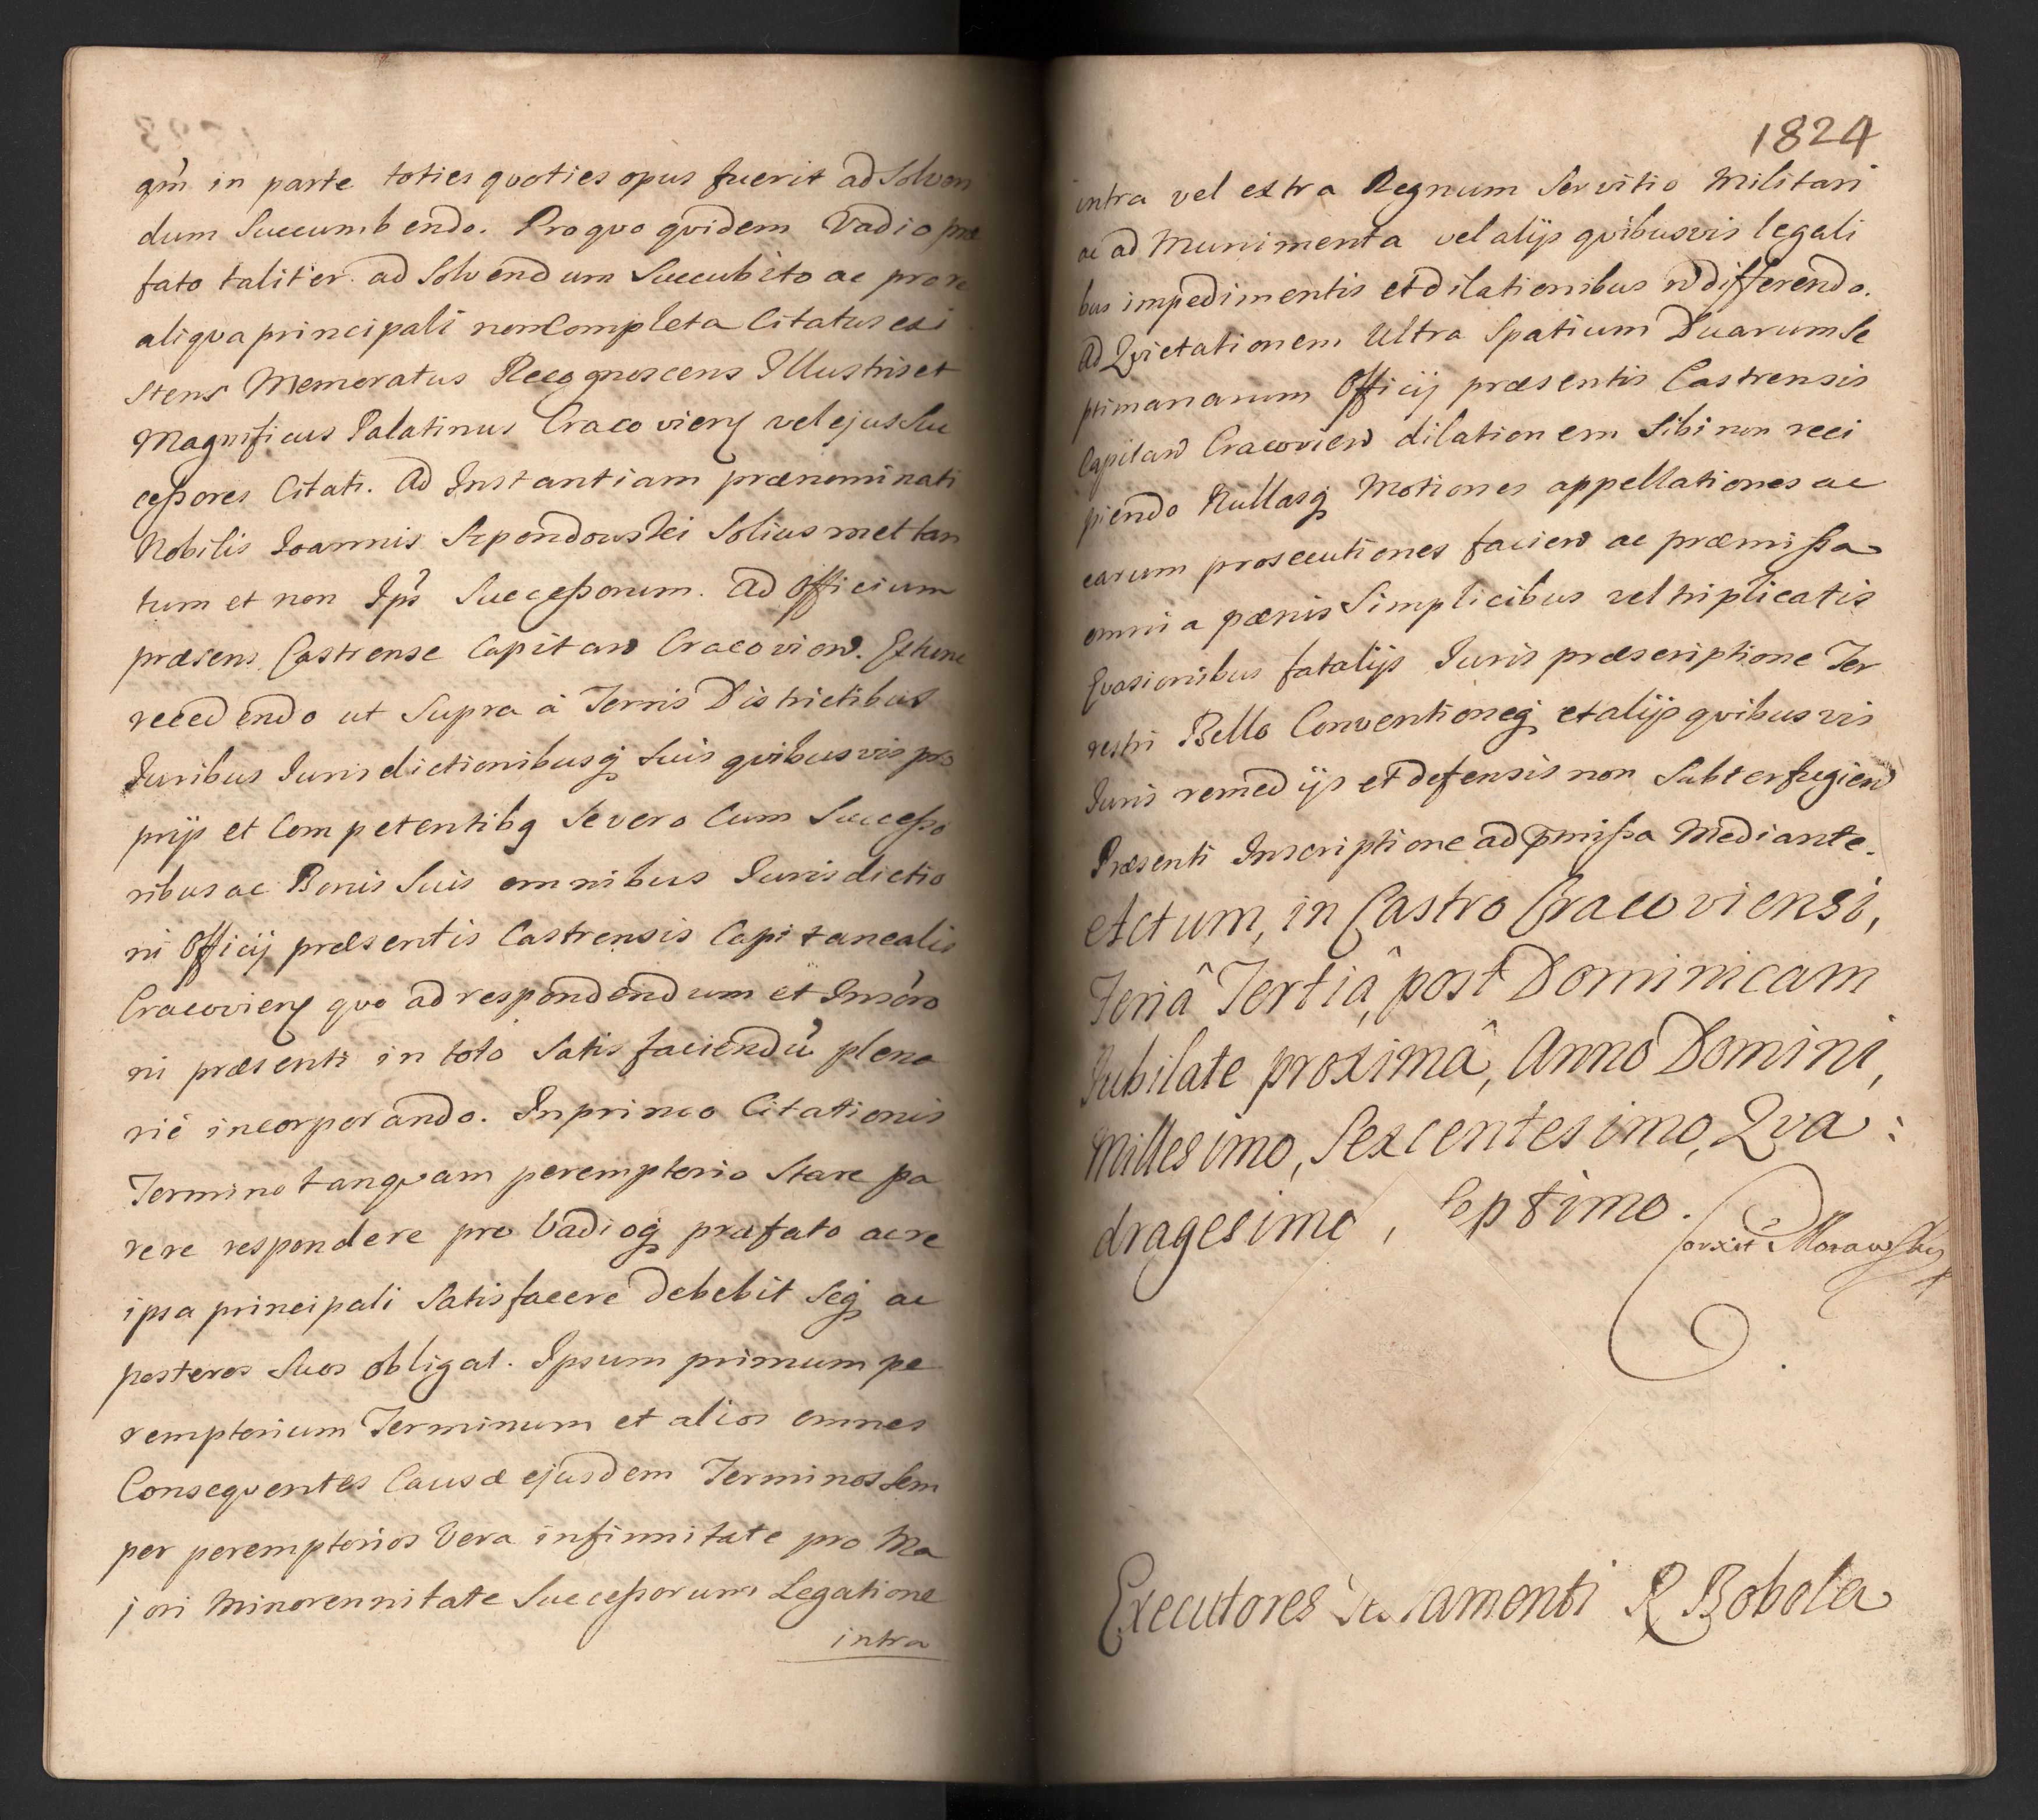 qm̃ in parte toties quoties opus fuerit ad Solven
dum Succumbendo. Pro quo quidem Vadio præ
fato taliter ad Solvendum Succubito ac pro re
aliqua principali non Completa Citatus exi
stens Memoratus Recognoscens Illustris et
Magnificus Palatinus Cracovien̄ vel ejus Suc
ceſsores Citati. Ad Instantiam prænominati
Nobilis Joannis Szpondowski Solius met tan
tum et non Ips̃ Succeſsorum. Ad Officium
præsens Castrense Capitan̄ Cracovien̄. Extunc
recedendo ut Supra à Terris Districtibus
Juribus Jurisdictionibusq́ Suis quibusvis pro
prijs et Competentibq Se vero Cum Succeſso
ribus ac Bonis Suis omnibus Jurisdictio
ni Officij præsentis Castrensis Capitanealis
Cracovien̄ quo ad respondendum et Inscr̃o
ni præsenti in toto Satisfaciendũ plena
riè incorporando. In primo Citationis
Termino tanquam peremptorio Stare pa
rere respondere pro Vadioq́ præfato ac re
ipsa principali Satisfacere debebit Seq́ ac
posteros Suos obligat. Ipsum primum pe
remptorium Terminum et alios omnes
Consequentes Causæ ejusdem Terminos Sem
per peremptorios Vera infirmitate pro Ma
jori Minorennitate Succeſsorum Legatione
intra
1824
intra vel extra Regnum Servitio Militari
ac ad Munimenta vel alijs quibusvis legali
bus impedimentis et dilationibus n̄ differendo.
Ad Quietationem Ultra Spatium Duarum Se
ptimanarum Officij præsentis Castrensis
Capitan̄ Cracovien̄ dilationem Sibi non reci
piendo Nullasq́ Motiones appellationes ac
earum prosecutiones facien̄ ac præmiſsa
omnia pænis Simplicibus vel triplicatis
Evasionibus fatalijs Juris præscriptione Ter
restri Bello Conventioneq́ et alijs quibusvis
Juris remedijs et defensis non Subterfugien̄
Præsenti Inscriptione ad p̄miſsa Mediante.
Actum, in Castro Cracoviensi,
Feriâ Tertiâ, post Dominicam
Jubilate proximâ, Anno Domini,
Millesimo, Sexcentesimo, Qua:
dragesimo, Septimo.
Corxit Morawsky
Executores Testamenti R Bobola